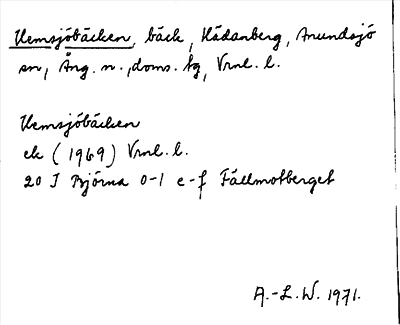 Hemsjöbäcken, bäck, Hädanberg, Anundsjö
sn, Ång. n., doms. tg, Vrnl. l.
Hemsjöbäcken
ek (1969) Vrnl. l.
20 I Björna 0-1 e-f Fällmotberget
A.-L.W. 1971.